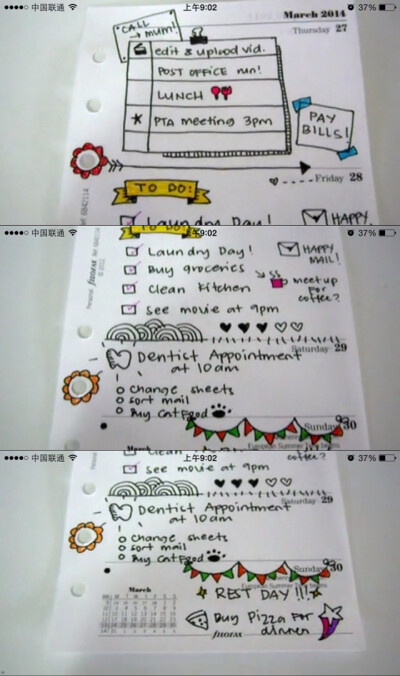 中国联通 上午9:02 37%
March 2014
Thursday 27
CALL
→ mum!
edit & upload vid.
POST OFFICE run!
LUNCH
PTA meeting 3pm
PAY
BILLS!
Friday 28
TO DO:
Laundry Day!
HAPPY
中国联通 9:02 37%
TO DO:
Laundry Day!
HAPPY
MAIL!
Buy groceries
Clean Kitchen
meetup
for
coffee?
see movie at 9pm
Personal filofax
© 2012
Saturday 29
Dentist Appointment
at 10am
change sheets
sort mail
Buy Cat Food
Sunday 30
European Summer Time begins
March
中国联通 上午9:02 37%
Clean
coffee?
see movie at 9pm
Saturday 29
Dentist Appointment
at 10am
change sheets
sort mail
Buy Cat Food
Sunday 30
European Summer Time begins
REST DAY !!!
March
Buy Pizza For
dinner
filofax